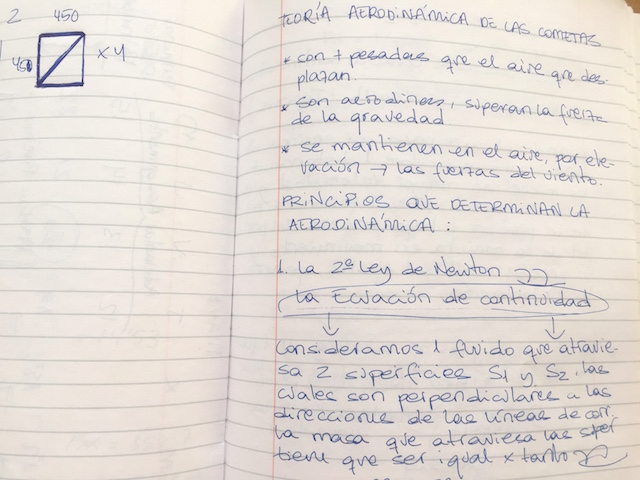 2 450
450 x 4
TEORÍA AERODINÁMICA DE LAS COMETAS
* son + pesadas que el aire que des-
plazan.
* son aerodines, superan la fuerza
de la gravedad
* se mantienen en el aire, por ele-
vación → las fuerzas del viento.
PRINCIPIOS QUE DETERMINAN LA
AERODINÁMICA :
1. la 2ª Ley de Newton
la Ecuación de continuidad
Consideramos 1 fluido que atravie-
sa 2 superficies S1 y S2, las
cuales son perpendiculares a las
direcciones de las líneas de corr.
la masa que atraviesa las super
tiene que ser igual x tanto